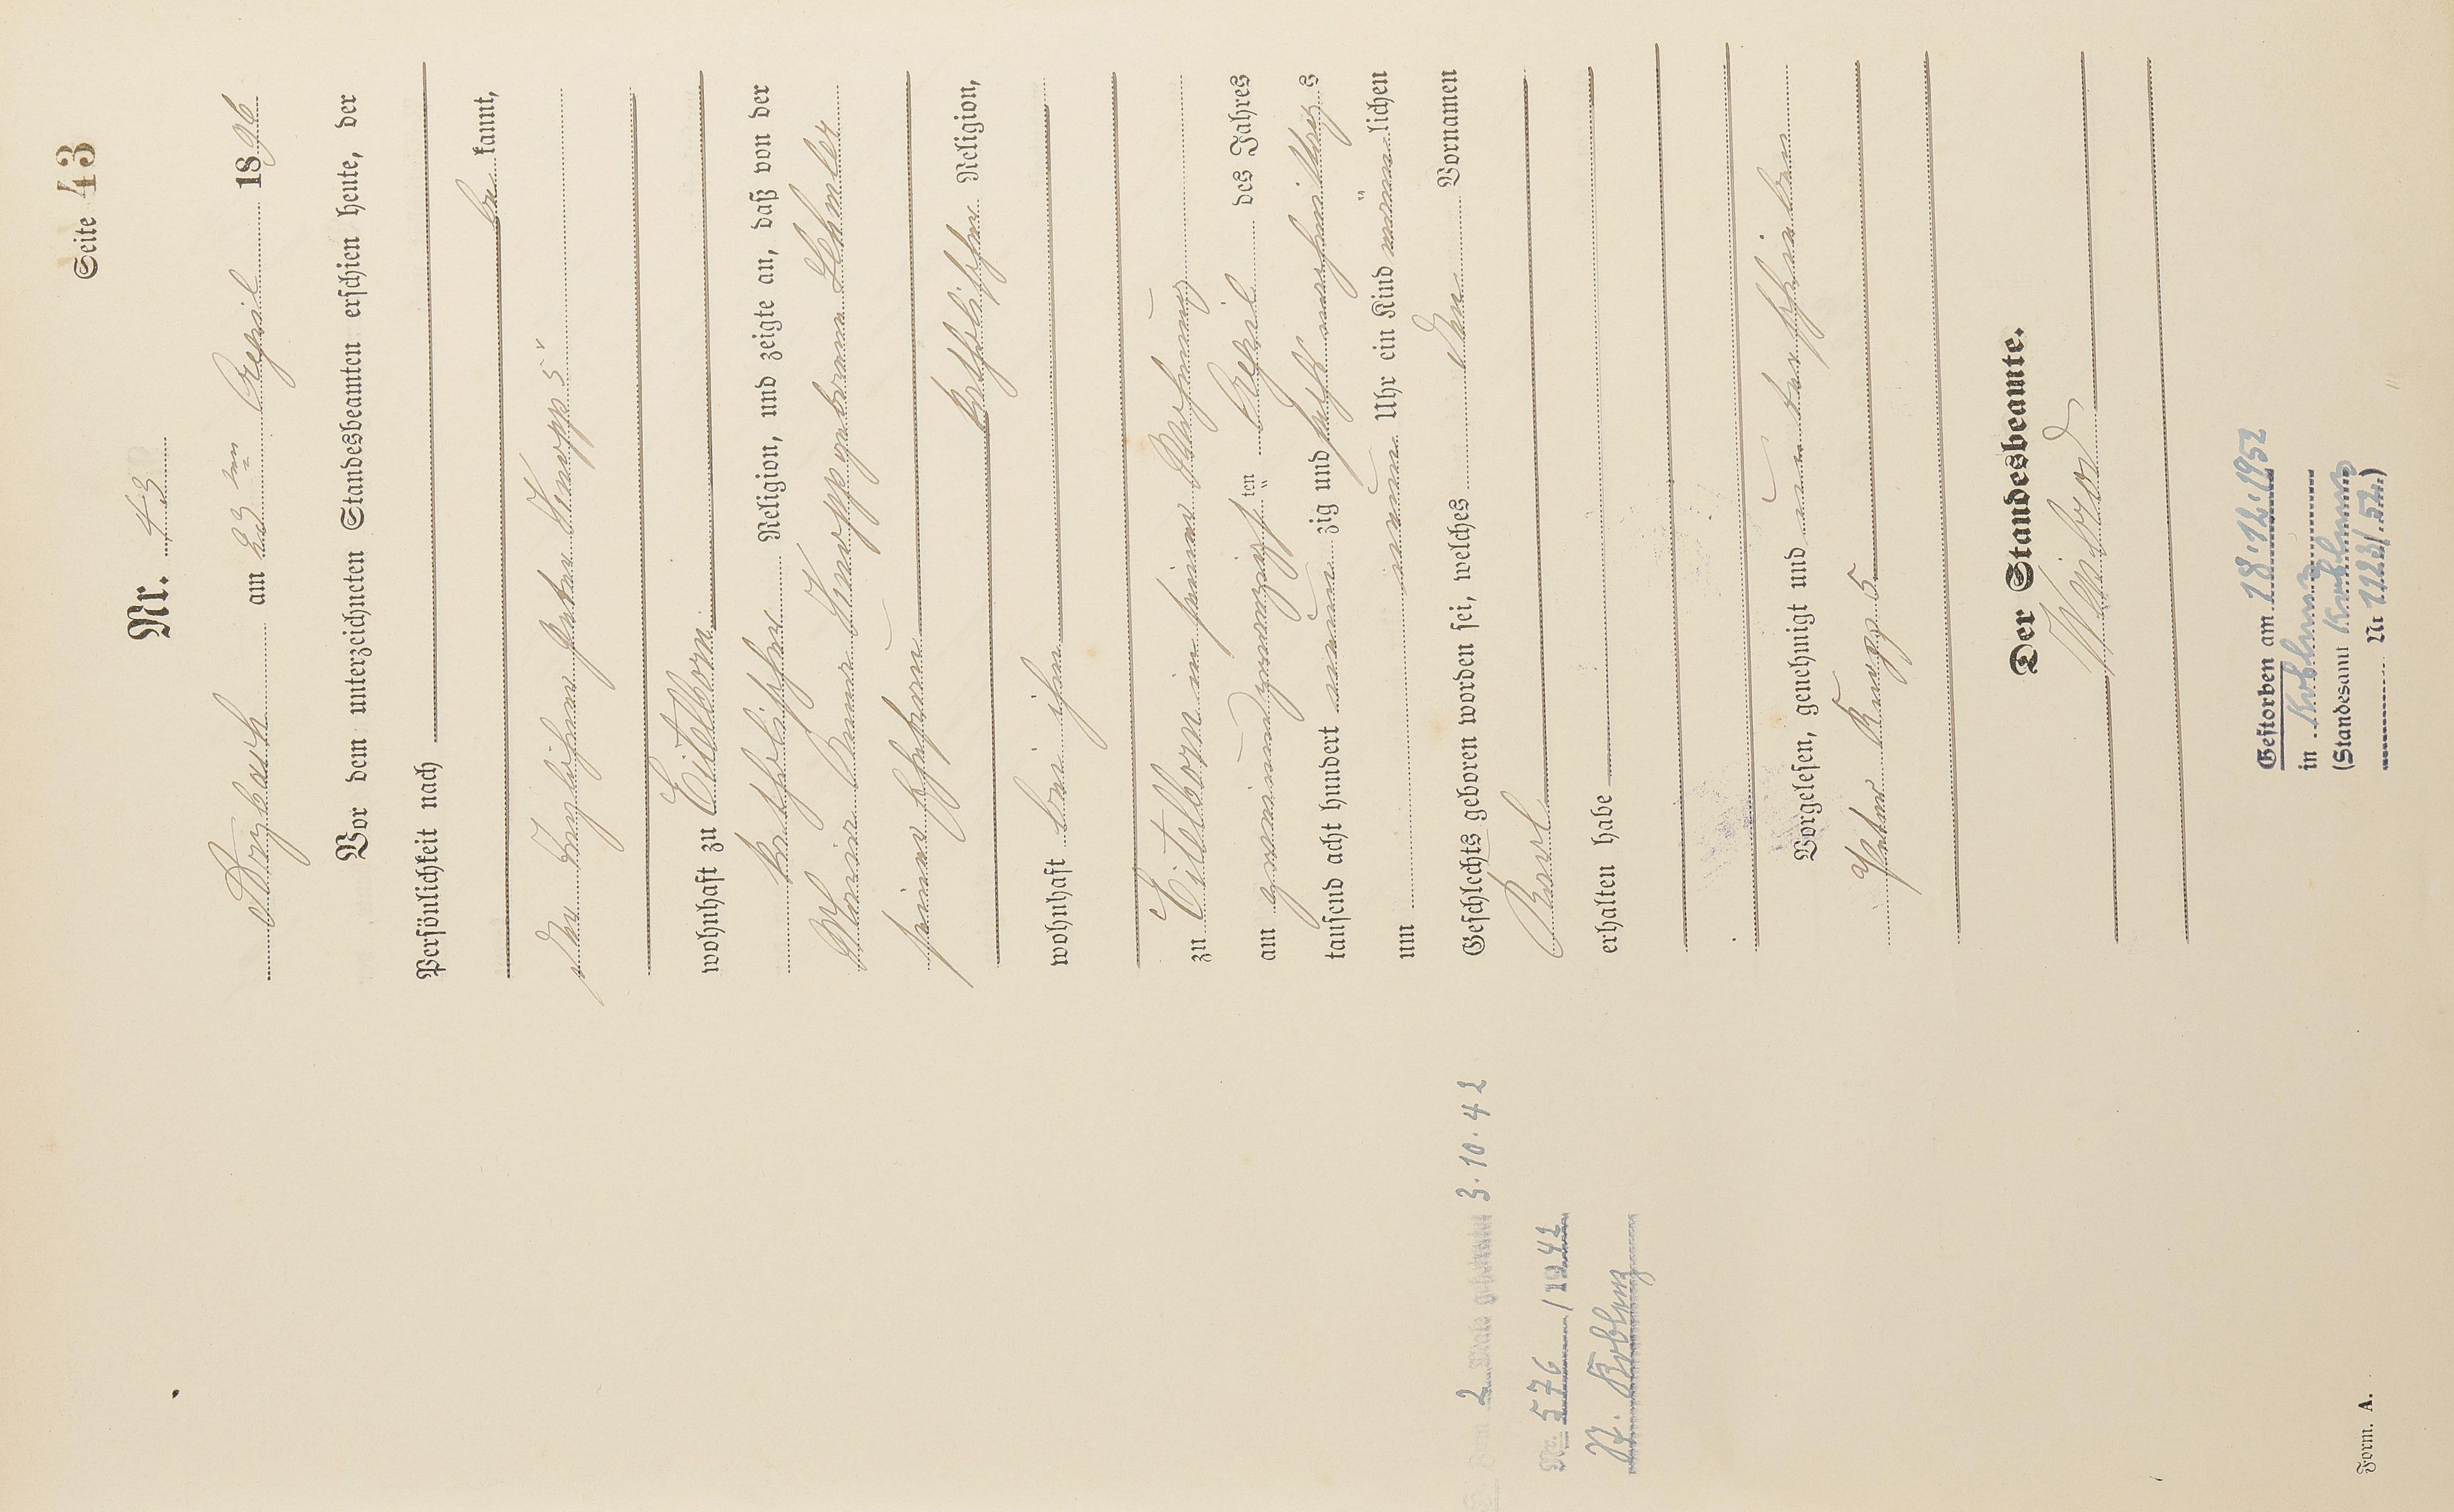 Seite 43
Nr. 43
Arzbach am 23ten April 1896
Vor dem unterzeichneten Standesbeamten erschien heute, der
Persönlichkeit nach
be kannt,
der Taglöhner Peter Knopp 5r
wohnhaft zu Eitelborn
katholischer Religion, und zeigte an, daß von der
Maria Anna Knopp gebornen Lehmler
seiner Ehefrau
katholischer Religion,
wohnhaft bei ihm
zu Eitelborn in seiner Wohnung
am zwanzigsten April des Jahres
tausend acht hundert neun zig und sechs nachmittags
um neun Uhr ein Kind männ lichen
Geschlechts geboren worden sei, welches den Vornamen
Karl
erhalten habe
Vorgelesen, genehmigt und unterschrieben
Peter Knopp 5.
Der Standesbeamte.
Zum 2. Male geheiratet 3.10.42
Nr. 576 / 1942
St. Koblenz
Gestorben am 18.12.1952
in Koblenz
(Standesamt Koblenz
Nr 1123/52)
Form. A.